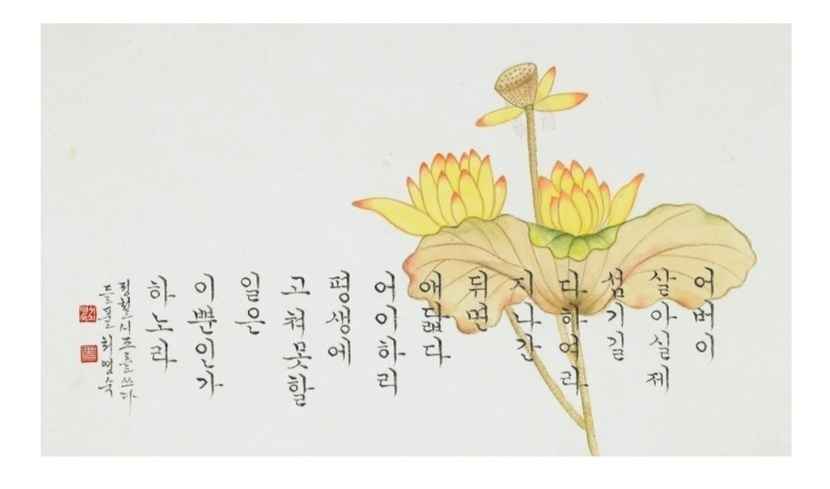 어버이
살아실 제
섬기길
다하여라
지나간
뒤면
애닯다
어이하리
평생에
고쳐못할
일은
이뿐인가
하노라
정철 시조를 쓰다
들풀 최명숙